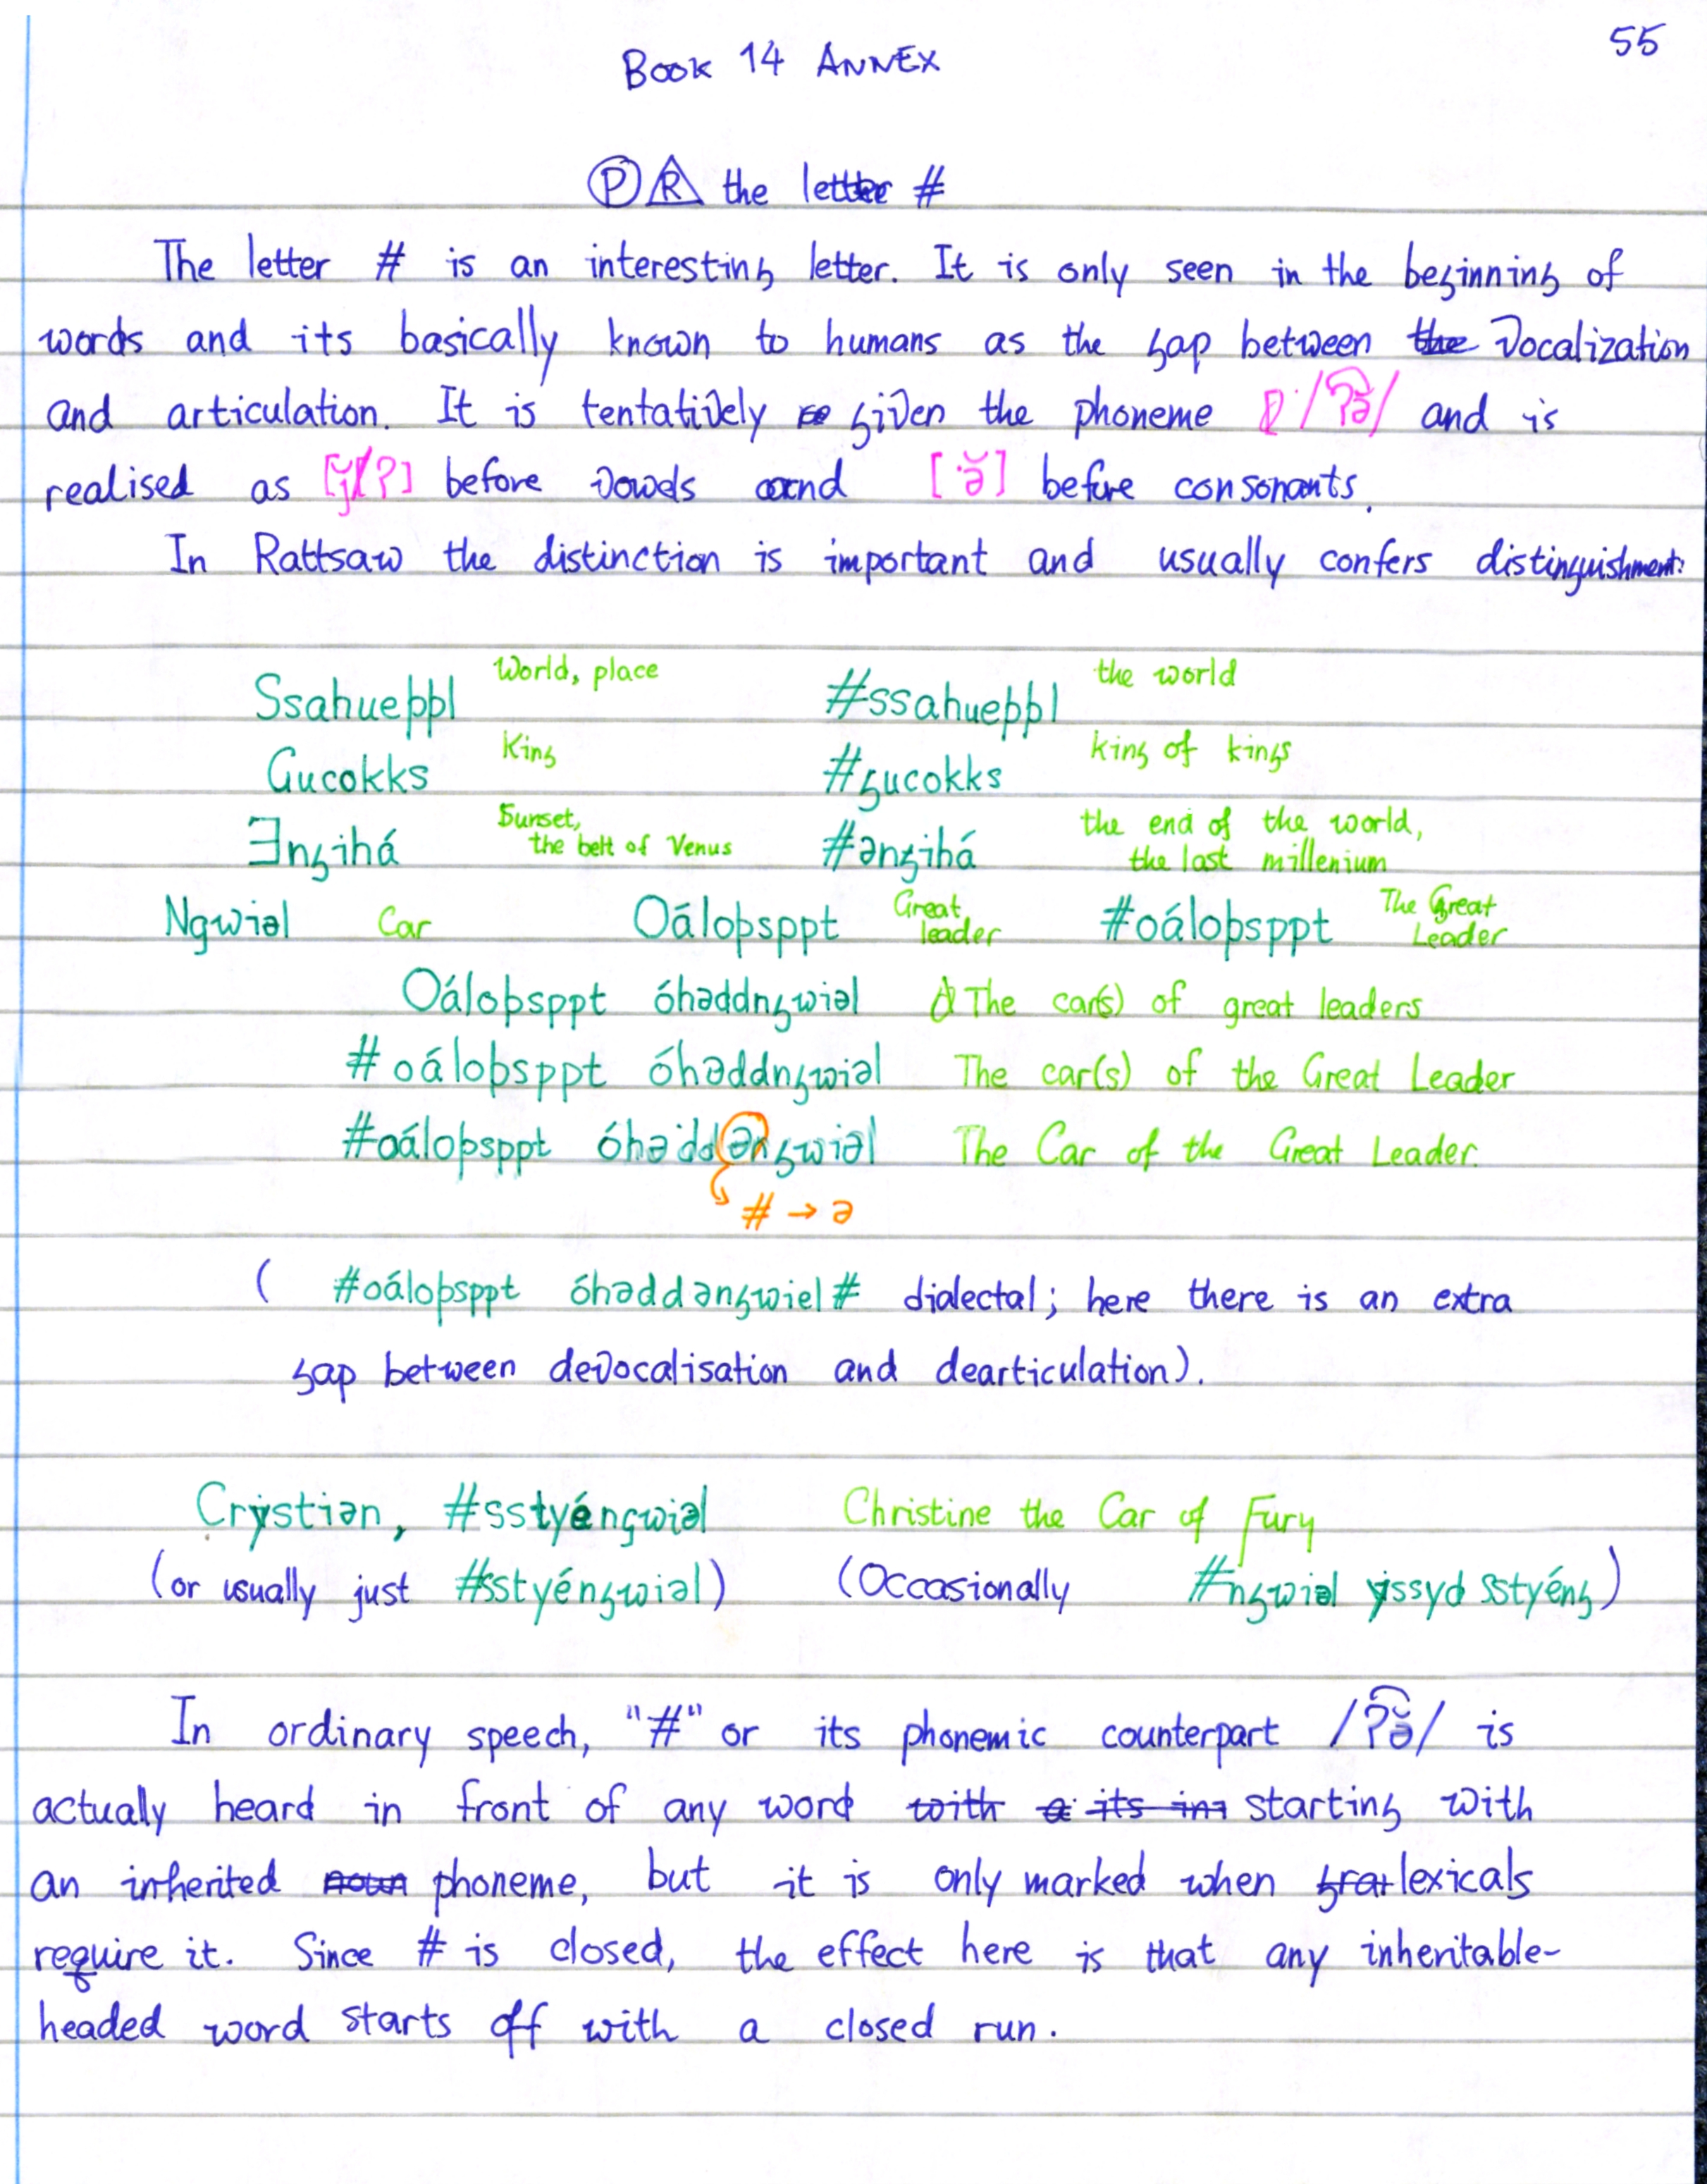 55
BOOK 14 ANNEX
Ⓟ R the letter #
The letter # is an interesting letter. It is only seen in the beginning of
words and its basically known to humans as the gap between the vocalization
and articulation. It is tentatively given the phoneme /ʔ͡ə̆/ and is
realised as [ʔ] before vowels and [ə̆] before consonants.
In Rattsaw the distinction is important and usually confers distinguishment:
Ssahueþþl World, place #ssahueþþl the world
Gucokks King #gucokks king of kings
Ǝngihá Sunset, the belt of Venus #əngihá the end of the world, the last millenium
Ngwiəl Car Oáloþsppt Great leader #oáloþsppt The Great Leader
Oáloþsppt óhəddngwiəl The car(s) of great leaders
#oáloþsppt óhəddngwiəl The car(s) of the Great Leader
#oáloþsppt óhəddəngwiəl The Car of the Great Leader.
# → ə
( #oáloþsppt óhəddəngwiel# dialectal; here there is an extra
gap between devocalisation and dearticulation).
Crystiən, #sstyéngwiəl Christine the Car of Fury
(or usually just #sstyéngwiəl) (Occasionally #ngwiəl yissyd sstyéng)
In ordinary speech, "#" or its phonemic counterpart /ʔ͡ə̆/ is
actually heard in front of any word with a its ini starting with
an inherited noun phoneme, but it is only marked when lexicals
require it. Since # is closed, the effect here is that any inheritable-
headed word starts off with a closed run.